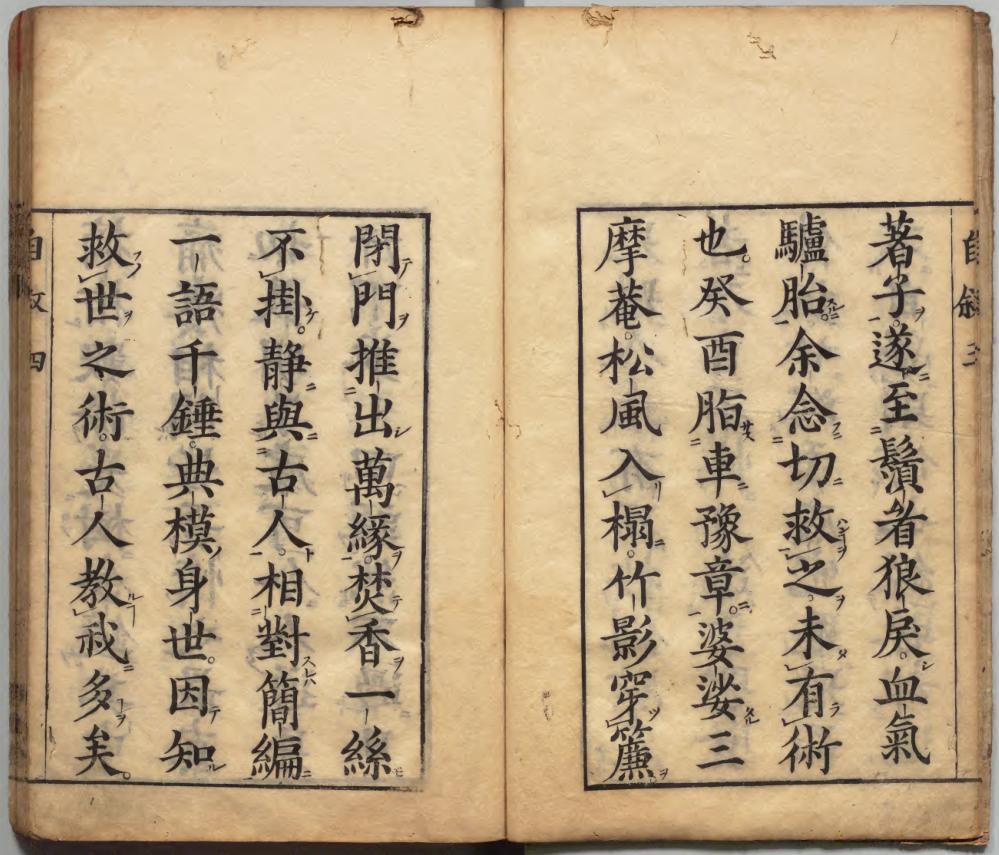 著子。遂至鬚眉狼戻。血氣
驢胎。余念切救之。未有術
也。癸酉脂車豫章。婆娑三
摩菴。松風入榻。竹影穿簾
閉門推出萬緣。焚香一絲
不掛。静與古人。相對簡編
一語千錘。典模身世。因知
救世之術。古人教我多矣。
自敘 四